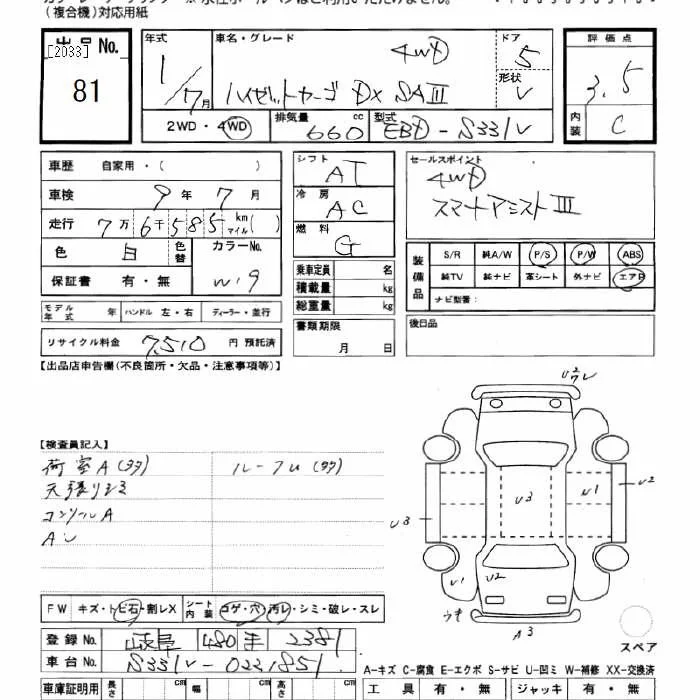 (複合機)対応用紙
[2033]
出品No.
81
年式
1/7月
車名・グレード
4WD
ハイゼットカーゴ DX SAIII
ドア
5
形状
V
評価点
3.5
内装
C
2WD・4WD
排気量 660 cc
型式 EBD-S331V
車歴 自家用・( )
車検 9年7月
走行 7万6千585 km マイル( )
色 白 色替 カラーNo. W19
保証書 有・無
シフト AT
冷房 AC
燃料 G
乗車定員 名
積載量 kg
総重量 kg
書類期限
月 日
セールスポイント
4WD
スマートアシストIII
装備品
S/R 純A/W P/S P/W ABS
純TV 純ナビ 革シート 外ナビ エアB
ナビ型番:
モデル年式 年 ハンドル 左・右 ディーラー・並行
後日品
リサイクル料金 7,510 円 預託済
【出品店申告欄(不良箇所・欠品・注意事項等)】
【検査員記入】
荷室A(タタ) ルーフU(タタ)
天張りシミ
コンソールA
AU
U2
U3
U1
U2
U3
U1
U2
A3
FW キズ・トビ石・割レX シート内装 コゲ・穴・汚レ・シミ・破レ・スレ
登録No. 岐阜 480 す 2381
車台No. S331V-0221851
スペア
A-キズ C-腐食 E-エクボ S-サビ U-凹ミ W-補修 XX-交換済
車庫証明用 長さ cm 幅 cm 高さ cm
工具 有・無 ジャッキ 有・無